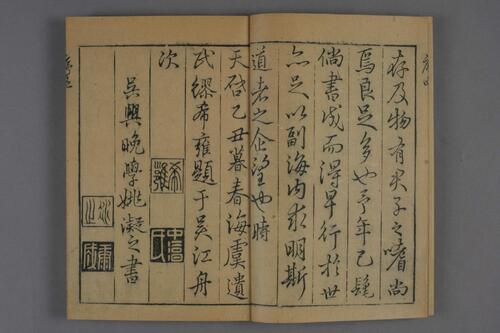 存及物有君子之嗜尚
焉良足多也予年已髦
倘書成而得早行於世
亦足以副海内求明斯
道者之企望也時
天啓乙丑暮春海虞遺
民繆希雍題于吳江舟
次
希雍
吳興晚學姚凝之書